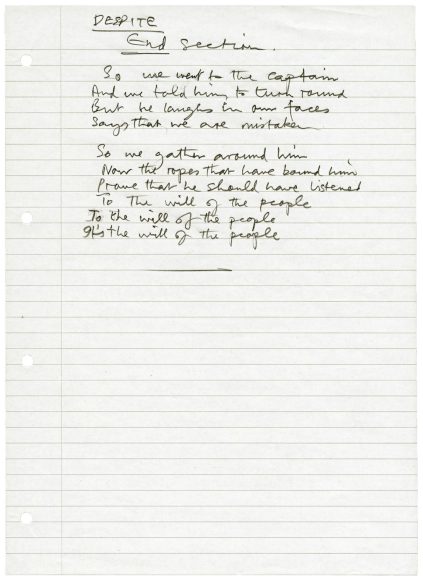 DESPITE
End section.
So we went to the captain
And we told him to turn round
But he laughs in our faces
Says that we are mistaken
So we gather around him
Now the ropes that have bound him
Prove that he should have listened
To The will of the people
To the will of the people
It's the will of the people